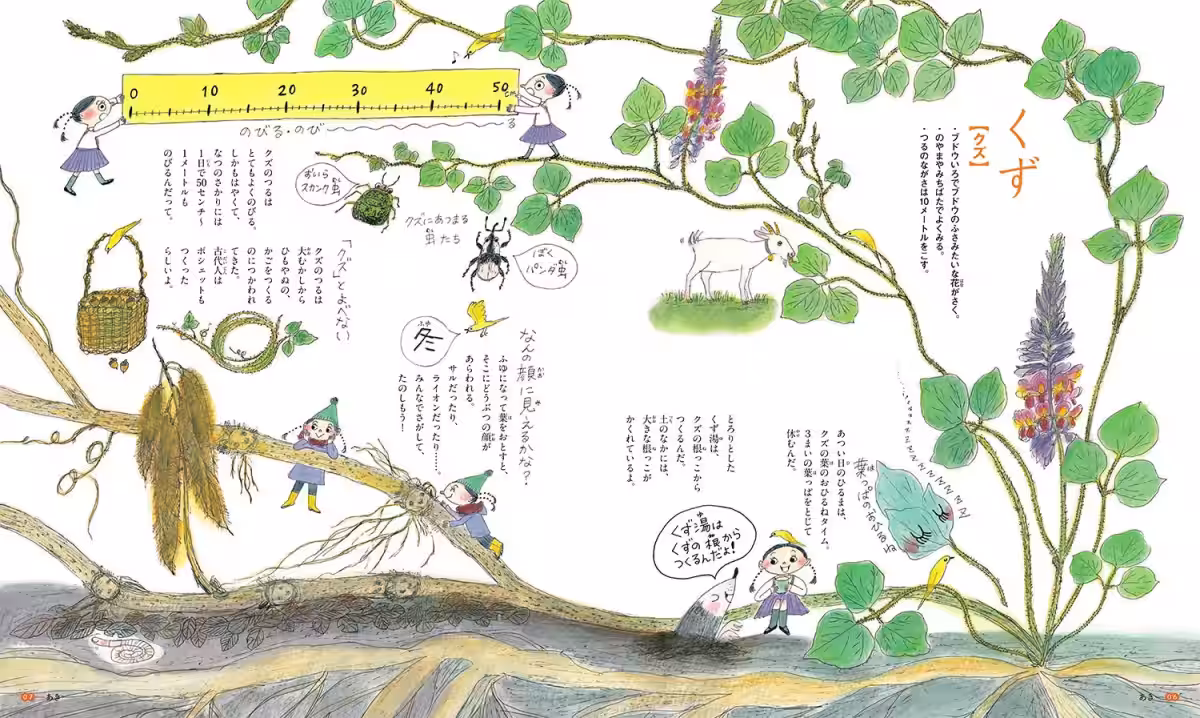 くず
【クズ】
・ブドウいろでブドウのふさみたいな花がさく。
・のやまやみちばたでよくみる。
・つるのながさは10メートルをこす。
あつい日のひるまは、
クズの葉のおひるねタイム。
3まいの葉っぱをとじて
休むんだ。
葉っぱのおひるね
zzzzzzzz
とろりとした
くず湯は、
クズの根っこから
つくるんだ。
土のなかには、
大きな根っこが
かくれているよ。
くず湯は
くずの根から
つくるんだよ!
0 10 20 30 40 50cm
のびる・のび〜る
クズのつるは
とてもよくのびる。
しかもはやくて、
なつのさかりには
1日で50センチ〜
1メートルも
のびるんだって。
ずいら
スカンク虫
クズにあつまる
虫たち
ぼく
パンダ虫
「クズ」とよべない
クズのつるは
大むかしから
ひもやぬの、
かごをつくる
のにつかわれ
てきた。
古代人は
ポシェットも
つくった
らしいよ。
冬
なんの顔に見えるかな?
ふゆになって葉をおとすと、
そこにどうぶつの顔が
あらわれる。
サルだったり、
ライオンだったり……。
みんなでさがして、
たのしもう!
07 あき
あき 06